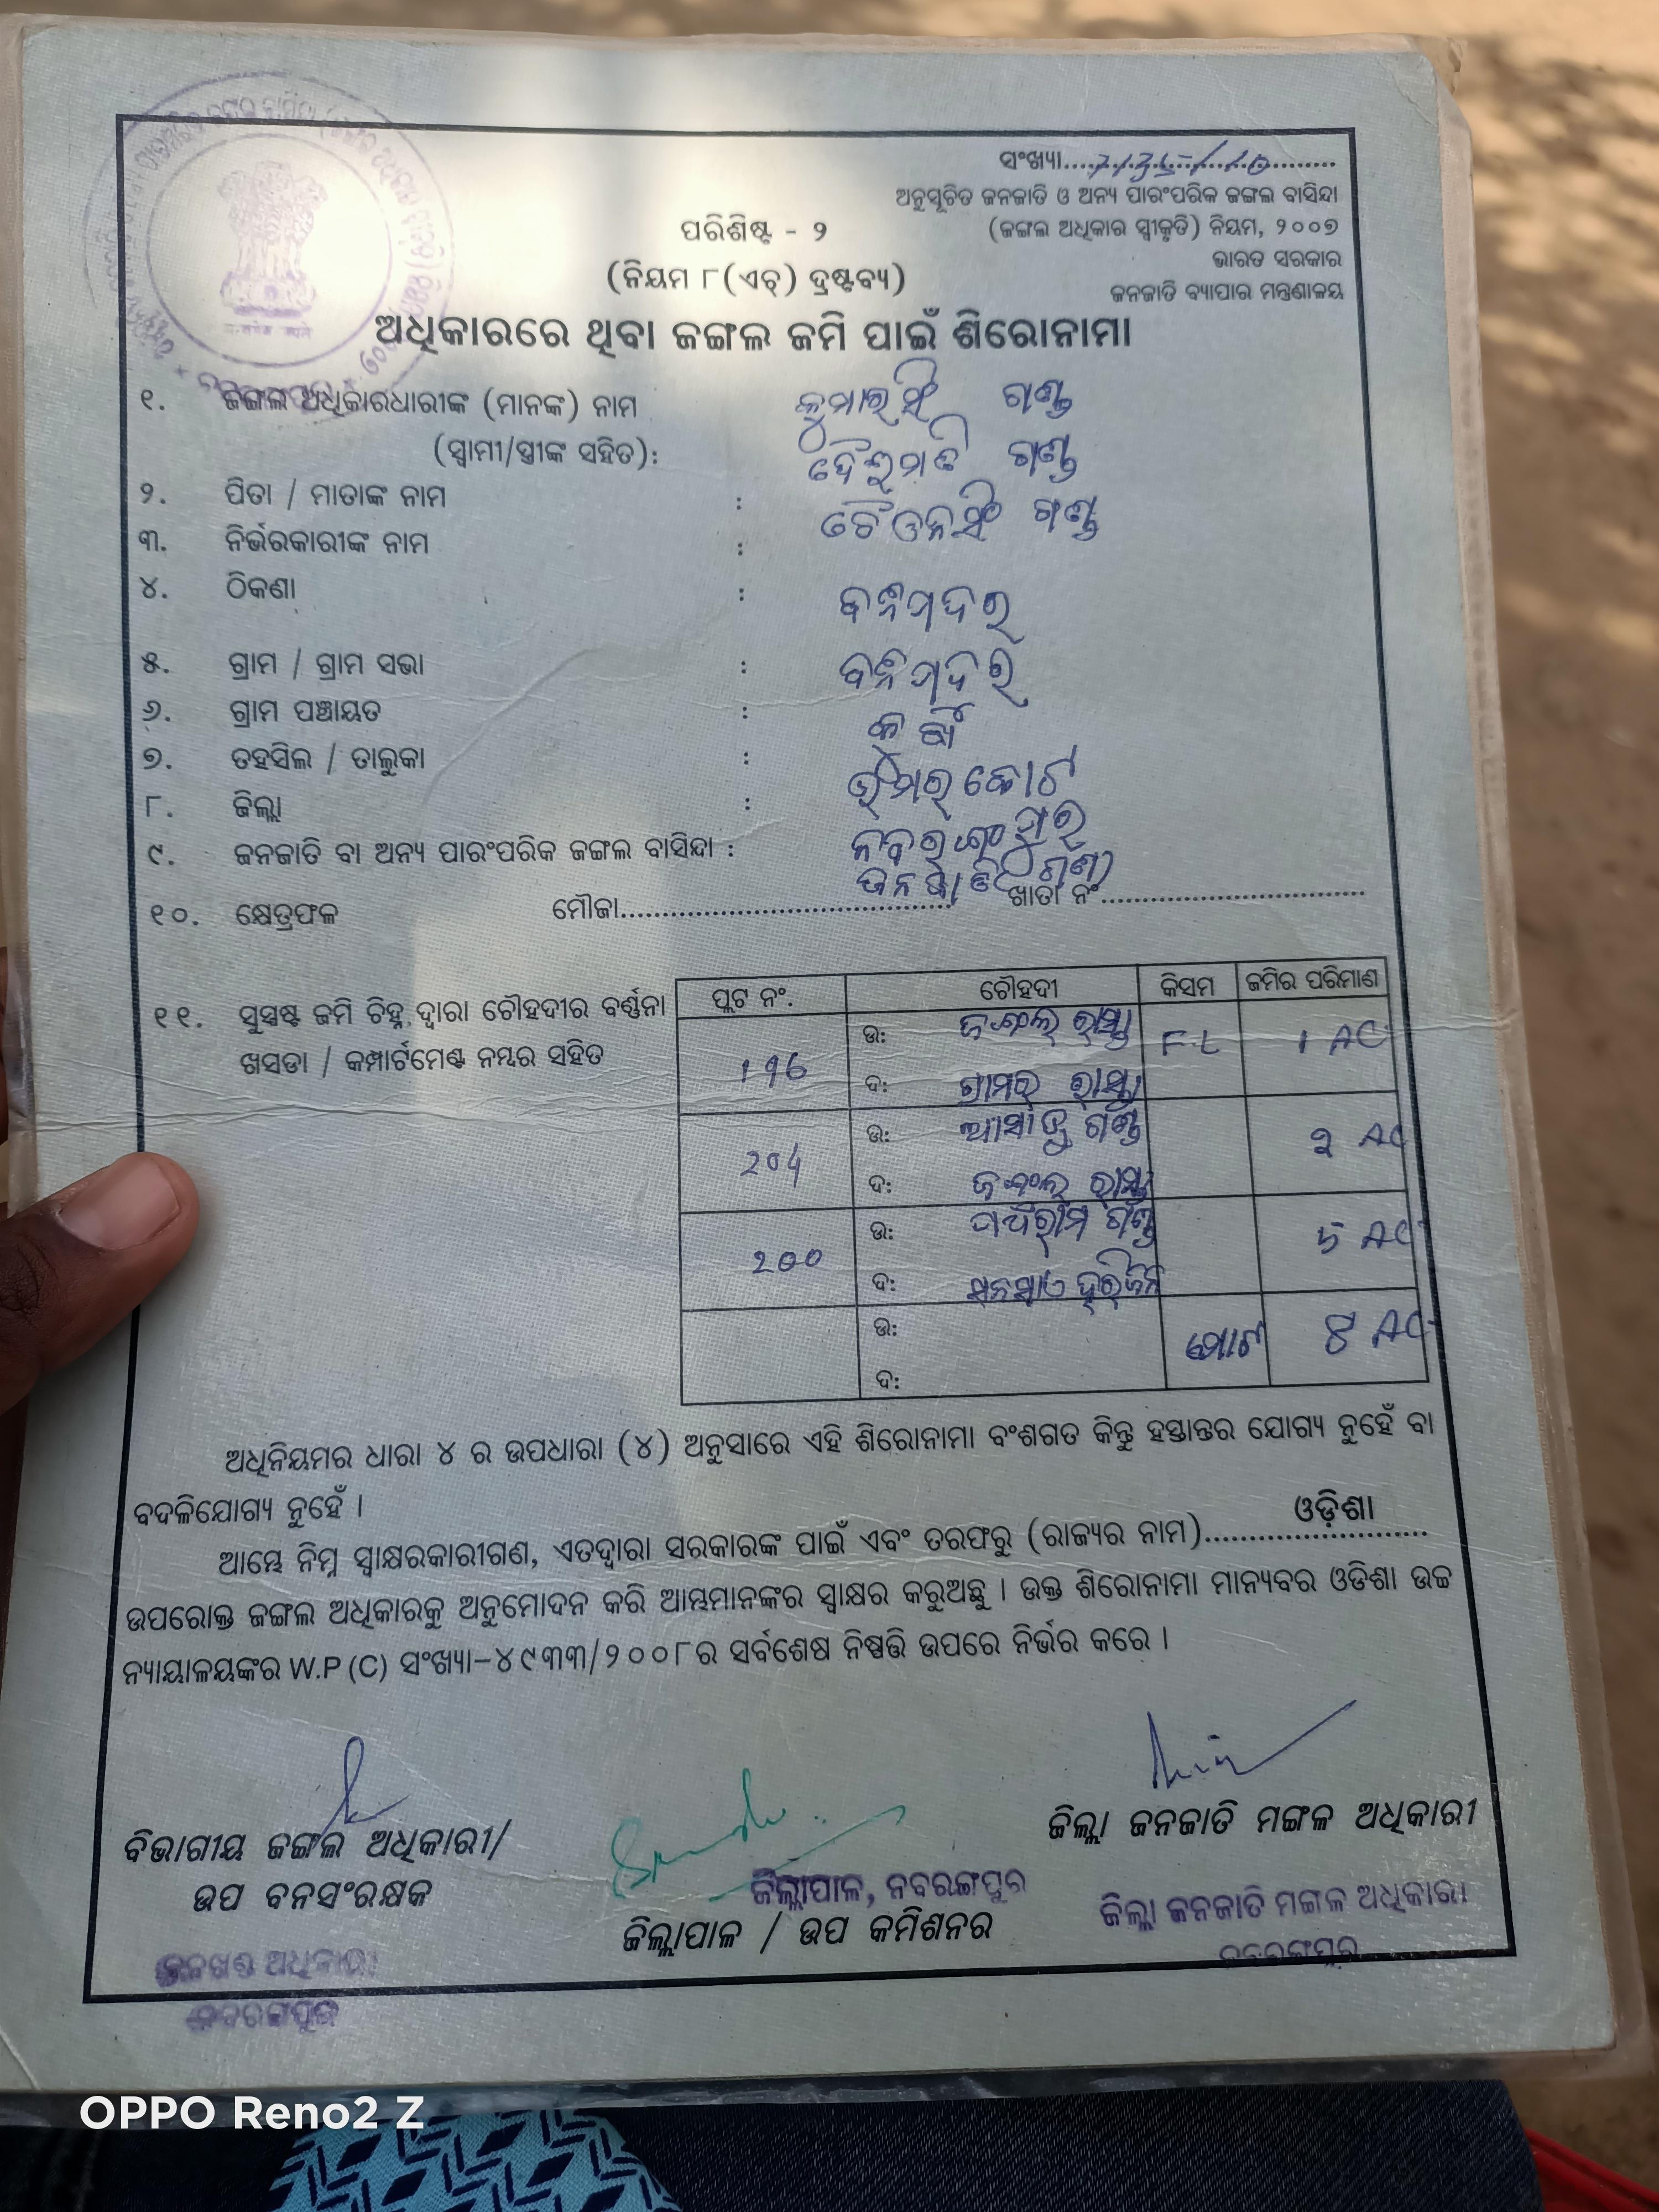 ସଂଖ୍ୟା....................
ଅନୁସୂଚିତ ଜନଜାତି ଓ ଅନ୍ୟ ପାରଂପରିକ ଜଙ୍ଗଲ ବାସିନ୍ଦା
(ଜଙ୍ଗଲ ଅଧିକାର ସ୍ୱୀକୃତି) ନିୟମ, ୨୦୦୭
ଭାରତ ସରକାର
ଜନଜାତି ବ୍ୟାପାର ମନ୍ତ୍ରଣାଳୟ
ପରିଶିଷ୍ଟ - ୨
(ନିୟମ ୮(ଏଚ୍) ଦ୍ରଷ୍ଟବ୍ୟ)
ଅଧିକାରରେ ଥିବା ଜଙ୍ଗଲ ଜମି ପାଇଁ ଶିରୋନାମା
୧. ଜଙ୍ଗଲ ଅଧିକାରଧାରୀଙ୍କ (ମାନଙ୍କ) ନାମ କୁମାରସିଂ ଗଣ୍ଡ
(ସ୍ୱାମୀ/ସ୍ତ୍ରୀଙ୍କ ସହିତ): ଗଣ୍ଡ
୨. ପିତା / ମାତାଙ୍କ ନାମ : ଗଣ୍ଡ
୩. ନିର୍ଭରକାରୀଙ୍କ ନାମ :
୪. ଠିକଣା :
୫. ଗ୍ରାମ / ଗ୍ରାମ ସଭା :
୬. ଗ୍ରାମ ପଞ୍ଚାୟତ :
୭. ତହସିଲ / ତାଲୁକା :
୮. ଜିଲ୍ଲା :
୯. ଜନଜାତି ବା ଅନ୍ୟ ପାରଂପରିକ ଜଙ୍ଗଲ ବାସିନ୍ଦା : ଜନଜାତି ଗଣ୍ଡ
୧୦. କ୍ଷେତ୍ରଫଳ ମୌଜା.................... ଖାତା ନଂ....................
୧୧. ସୁସ୍ପଷ୍ଟ ଜମି ଚିହ୍ନ ଦ୍ୱାରା ଚୌହଦୀର ବର୍ଣ୍ଣନା
ଖସଡା / କମ୍ପାର୍ଟମେଣ୍ଟ ନମ୍ବର ସହିତ
ପ୍ଲଟ ନଂ. ଚୌହଦୀ କିସମ ଜମିର ପରିମାଣ
196 ଉ: ଜଙ୍ଗଲ ରାସ୍ତା F.L 1 AC
ଦ: ଗ୍ରାମର ରାସ୍ତା
204 ଉ: ଗଣ୍ଡ ୨ AC
ଦ: ଜଙ୍ଗଲ ରାସ୍ତା
200 ଉ: ଗଣ୍ଡ 5 AC
ଦ: ହରିଜନ
ଉ: ମୋଟ 8 AC
ଦ:
ଅଧିନିୟମର ଧାରା ୪ ର ଉପଧାରା (୪) ଅନୁସାରେ ଏହି ଶିରୋନାମା ବଂଶଗତ କିନ୍ତୁ ହସ୍ତାନ୍ତର ଯୋଗ୍ୟ ନୁହେଁ ବା
ବଦଳିଯୋଗ୍ୟ ନୁହେଁ ।
ଆମ୍ଭେ ନିମ୍ନ ସ୍ୱାକ୍ଷରକାରୀଗଣ, ଏତଦ୍ୱାରା ସରକାରଙ୍କ ପାଇଁ ଏବଂ ତରଫରୁ (ରାଜ୍ୟର ନାମ)....ଓଡ଼ିଶା....
ଉପରୋକ୍ତ ଜଙ୍ଗଲ ଅଧିକାରକୁ ଅନୁମୋଦନ କରି ଆମ୍ଭମାନଙ୍କର ସ୍ୱାକ୍ଷର କରୁଅଛୁ । ଉକ୍ତ ଶିରୋନାମା ମାନ୍ୟବର ଓଡିଶା ଉଚ୍ଚ
ନ୍ୟାୟାଳୟଙ୍କର W.P (C) ସଂଖ୍ୟା-୪୯୩୩/୨୦୦୮ର ସର୍ବଶେଷ ନିଷ୍ପତ୍ତି ଉପରେ ନିର୍ଭର କରେ ।
ବିଭାଗୀୟ ଜଙ୍ଗଲ ଅଧିକାରୀ/
ଉପ ବନସଂରକ୍ଷକ
ବନଖଣ୍ଡ ଅଧିକାରୀ
ନବରଙ୍ଗପୁର
ଜିଲ୍ଲାପାଳ, ନବରଙ୍ଗପୁର
ଜିଲ୍ଲାପାଳ / ଉପ କମିଶନର
ଜିଲ୍ଲା ଜନଜାତି ମଙ୍ଗଳ ଅଧିକାରୀ
ଜିଲ୍ଲା ଜନଜାତି ମଙ୍ଗଳ ଅଧିକାରୀ
ନବରଙ୍ଗପୁର
OPPO Reno2 Z